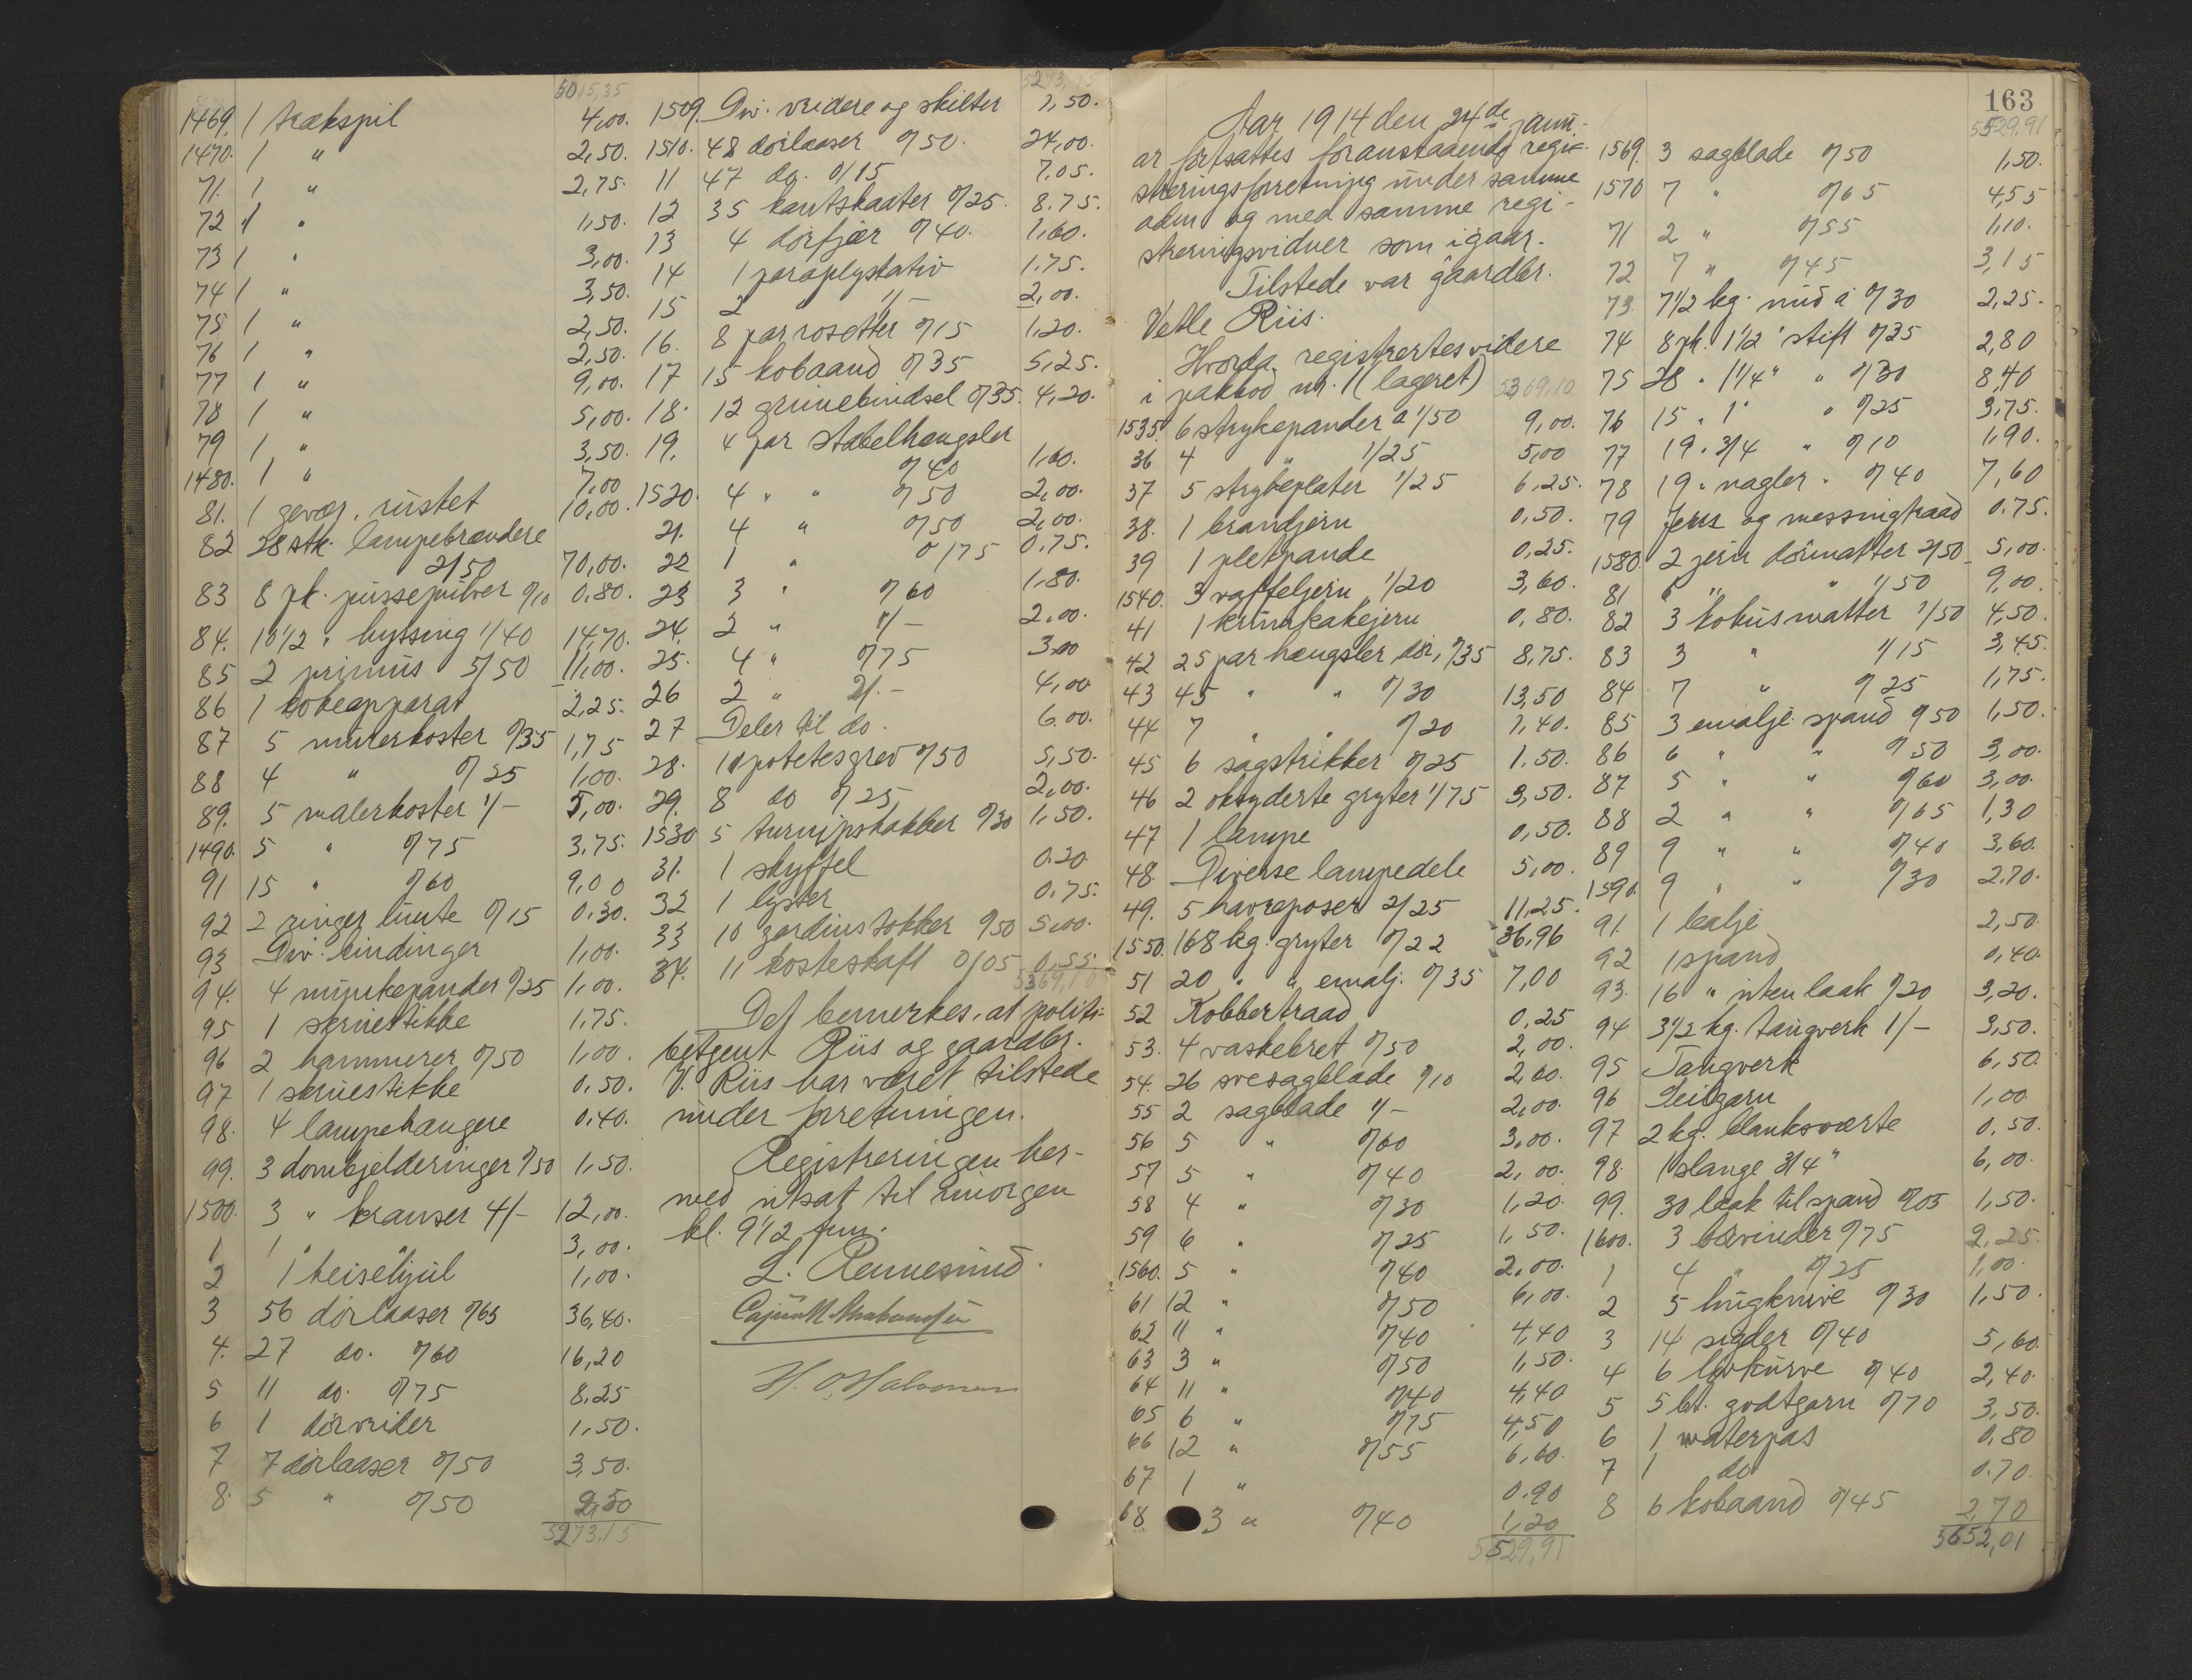 5005,35
1469. 1 trækspil 4,00.
1470. 1 " 2,50.
71. 1 " 2,75.
72 1 " 1,50.
73 1 " 3,00.
74 1 " 3,50.
75 1 " 2,50.
76 1 " 2,50.
77 1 " 9,00.
78 1 " 5,00.
79 1 " 3,50.
1480. 1 " 7,00
81. 1 gevær, rustet 10,00.
82 28 stk. lampebrændere
2/50 70,00.
83 8 pk. pussepulver 0/10 0,80.
84. 10 1/2 " hyssing 1/40 14,70.
85 2 primus 5/50 11,00.
86 1 kokeapparat 2,25.
87 5 murerkoster 0/35 1,75
88 4 " 0/25 1,00.
89. 5 malerkoster 1/- 5,00.
1490. 5 " 0/75 3,75.
91 15 " 0/60 9,00
92 2 ringer lunte 0/15 0,30.
93 Div. bindinger 1,00.
94. 4 munkepander 0/25 1,00.
95 1 skruestikke 1,75.
96 2 hammerer 0/50 1,00.
97 1 skruestikke 0,50.
98. 4 lampehangere 0,40.
99. 3 dombjelderinger 0/50 1,50.
1500. 3 " kranser 4/- 12,00.
1 1 " " 3,00.
2 1 heisehjul 1,00.
3 56 dørlaaser 0/65 36,40.
4. 27 do. 0/60 16,20
5 11 do. 0/75 8,25
6 1 dørvrider 1,50.
7 7 dørlaaser 0/50 3,50.
8. 5 " 0/50 2,50
5273,15
5273,15
1509. Div. vridere og skilter 2,50.
1510. 48 dørlaaser 0/50. 24,00.
11 47 do. 0/15 7,05.
12 35 kantskaater 0/25. 8.75.
13 4 dørfjær 0/40. 1,60.
14 1 paraplystativ 1.75.
15 2 " 1/- 2,00.
16. 8 par rosetter 0/15 1,20.
17 15 kobaand 0/35 5,25.
18. 12 grimebindsel 0/35. 4,20.
19. 4 par stabelhængsler
0/40 1,60.
1520. 4 " " 0/50 2,00.
21. 4 " 0/50 2,00.
22 1 " 0/75 0,75.
23 3 " 0/60 1,80.
24. 2 " 1/- 2,00.
25. 4 " 0/75 3,00
26 2 " 2/- 4,00
27 Deler til do. 6.00.
28. 11 potetesgrev 0/50 5,50.
29. 8 do 0/25 2,00.
1530 5 turnipshakker 0/30 1,50.
31. 1 skyffel 0.20.
32 1 lyster 0,75.
33 10 gardinstokker 0/50 5,00.
34. 11 kosteskaft 0/05 0,55
5369,10
Det bemerkes, at politi-
betjent Riis og gaardbr.
V. Riis har været tilstede
under forretningen.
Registreringen her-
med utsat til imorgen
kl. 9 1/2 fm.
L. Rennesund.
H. O. Halvorsen
163
Aar 1914 den 24de janu-
ar fortsattes foranstaaende regi-
streringsforretning under samme
adm og med samme regi-
streringsvidner som igaar.
Tilstede var gaardbr.
Vetle Riis.
Hvorda registrertes videre
i pakbod nr. 1 (lageret) 5369,10
1535. 6 strykepander à 1/50 9,00.
36 4 " 1/25 5,00
37 5 strykeplater 1/25 6,25.
38. 1 brandjern 0,50.
39 1 pletpande 0,25.
1540. 3 vaffeljern 1/20 3,60.
41 1 krumkakejern 0,80.
42 25 par hængsler, dør, 0/35 8,75.
43 45 " " 0/30 13,50
44 7 " " 0/20 1,40.
45 6 sagstrikker 0/25 1.50.
46 2 oksyderte gryter 1/75 3,50.
47 1 lampe 0,50.
48. Diverse lampedele 5,00.
49. 5 havreposer 2/25 11,25.
1550. 168 kg. gryter 0/22 36,96
51 20 " " emalj. 0/35 7,00
52 Kobbertraad 0,25
53. 4 vaskebret 0/50 2,00.
54. 26 svesagblade 0/10 2,60.
55 2 sagblade 1/- 2,00.
56 5 " 0/60 3,00.
57 5 " 0/40 2,00.
58 4 " 0/30 1,20.
59 6 " 0/25 1,50.
1560. 5 " 0/40 2,00.
61 12 " 0/50 6,00.
62 11 " 0/40 4,40
63 3 " 0/50 1,50.
64 11 " 0/40 4,40
65 6 " 0/75 4,50
66 12 " 0/55 6,60.
67 1 " 0.90
68 3 " 0/40 1,20
5529,91
5529,91
1569. 3 sagblade 0/50 1,50.
1570 7 " 0/65 4,55
71 2 " 0/55 1,10.
72 7 " 0/45 3,15
73. 7 1/2 kg. nud à 0/30 2,25.
74 8 pk. 1 1/2" stift 0/35 2,80
75 28 " 1 1/4" " 0/30 8,40
76 15 " 1" " 0/25 3,75.
77 19 " 3/4 " 0/10 1,90.
78 19 " nagler " 0/40 7,60
79 Jern og messingtraad 0.75.
1580. 2 jern dørmatter 2/50 5,00.
81 6 " " 1/50 9,00.
82 3 kokusmatter 1/50 4,50.
83 3 " 1/15 3,45.
84 7 " 0/25 1,75.
85 3 emalje spand 0/50 1,50.
86 6 " " 0/50 3,00.
87 5 " " 0/60 3,00.
88 2 " " 0/65 1,30
89 9 " " 0/40 3,60.
1590. 9 " " 0/30 2.70.
91. 1 balje 2,50.
92 1 spand 0,40.
93. 16 " uten laak 0/20 3,20.
94 3 1/2 kg. taugverk 1/- 3,50.
95 Taugverk 6,50.
96 Seilgarn 1,00.
97 2 kg. blanksværte 0,50.
98. 1 slange 3/4" 6,00.
99. 30 laak til spand 0/05 1,50.
1600. 3 0/75 2,25.
1 4 " 0/25 1,00.
2 5 hugknive 0/30 1,50.
3 14 sigder 0/40 5,60.
4 6 løvkurve 0/40 2,40.
5 5 bt. godtgarn 0/70 3,50.
6 1 waterpas 0,80
7 1 do 0.70.
8 6 kobaand 0/45 2,70
5652,01